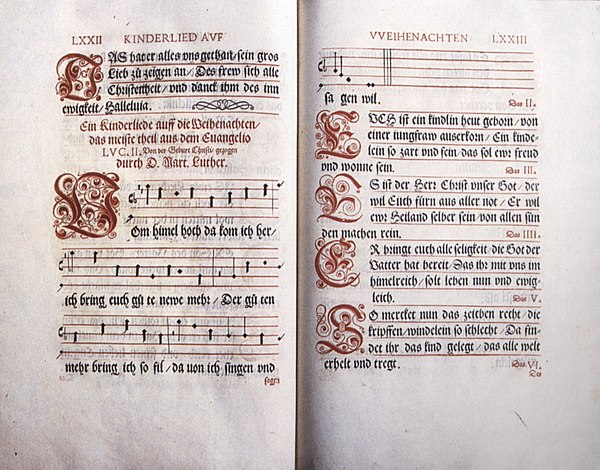 LXXII KINDERLIED AVF
DAS hat er alles vns gethan / sein gros
Lieb zů zeigen an / Des frew sich alle
Christenheit / vnd danck ihm des inn
ewigkeit / Halleluia.
Ein Kinderliede auff die Weihenachten /
das meiste theil aus dem Euangelio
LVC. II. Von der Geburt Christi / gezogen
durch D. Mart. Luther.
VOm himel hoch da kom ich her /
ich bring euch gůte newe mehr / Der gůten
mehr bring ich so fil / da von ich singen vnd
sagen
VVEIHENACHTEN LXXIII
sagen wil.
Das II.
EVCH ist ein kindlin heut geborn / von
einer jungfraw auserkorn / Ein kinde-
lein so zart vnd fein / das sol ewr freud
vnd wonne sein. Das III.
ES ist der Herr Christ vnser Got / der
wil Euch fürn aus aller not / Er wil
ewr Heiland selber sein / von allen sün
den machen rein. Das IIII.
ER bringt euch alle seligkeit / die Got der
Vatter hat bereit / Das ihr mit vns im
himelreich / solt leben nun vnd ewig-
leich. Das V.
SO mercket nun das zeichen recht / die
kripffen / windelein so schlecht / Da fin-
det ihr das kind gelegt / das alle welt
erhelt vnd tregt. Das VI.
Des